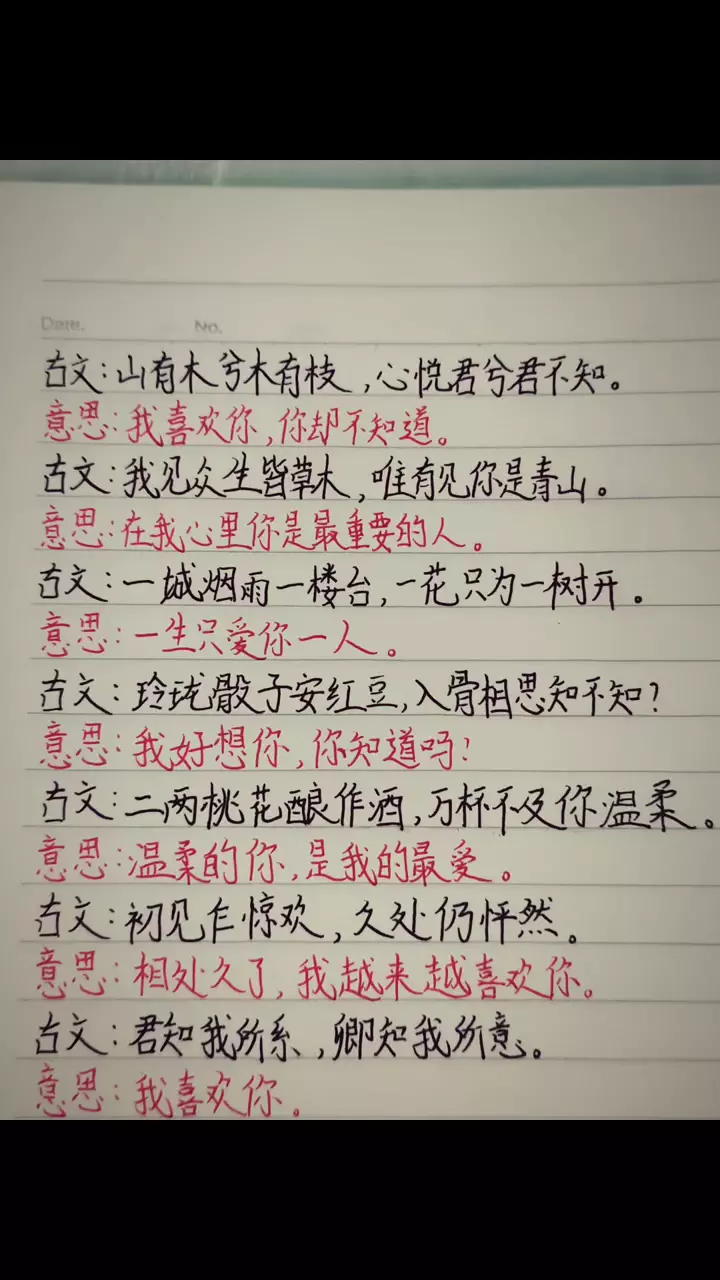 Date. No.
古文:山有木兮木有枝,心悦君兮君不知。
意思:我喜欢你,你却不知道。
古文:我见众生皆草木,唯有见你是青山。
意思:在我心里你是最重要的人。
古文:一城烟雨一楼台,一花只为一树开。
意思:一生只爱你一人。
古文:玲珑骰子安红豆,入骨相思知不知?
意思:我好想你,你知道吗?
古文:二两桃花酿作酒,万杯不及你温柔。
意思:温柔的你,是我的最爱。
古文:初见乍惊欢,久处仍怦然。
意思:相处久了,我越来越喜欢你。
古文:君知我所系,卿知我所意。
意思:我喜欢你。